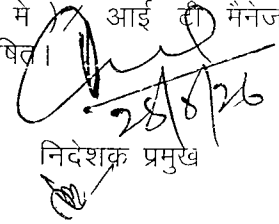 मे आई टी मैनेज
षित।
28/8/26
निदेशक प्रमुख